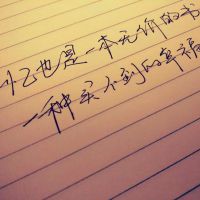 忆也是一本无价的书
一种买不到的幸福